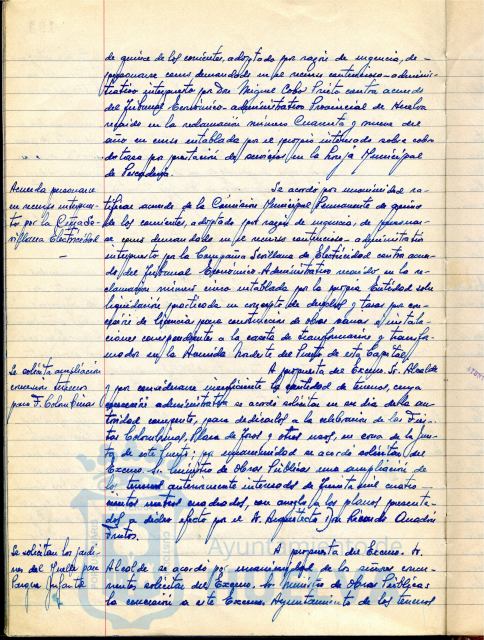 de quince de los corrientes, adoptado por razón de urgencia, de
personarse como demandado en el recurso contencioso-adminis-
trativo interpuesto por Don Miguel Cobo Prieto contra acuerdo
del Tribunal Económico-administrativo Provincial de Huelva
recaido en la reclamación número Cuarenta y nueve del
año en curso entablada por el propio interesado sobre cobro
de tasa por prestación de servicios en la Lonja Municipal
de Pescadería.
Acuerdo personarse
en recurso interpues-
to por la Cª Se-
villana Electricidad
Se acordó por unanimidad ra-
tificar acuerdo de la Comisión Municipal Permanente de quince
de los corrientes, adoptado por razón de urgencia, de personar-
se como demandado en el recurso contencioso-administrativo
interpuesto por la Compañia Sevillana de Electricidad contra acuer-
do del Tribunal Económico Administrativo recaido en la re-
clamación número cinco entablada por la propia Entidad sobre
liquidación practicada en concepto de derechos y tasas por con-
cesión de licencia para construccion de obras varias e instala-
ciones correspondientes a la caseta de transformación y transfor-
mador en la Avenida Norte del Puerto de esta Capital.
Se solicita ampliación
concesión terrenos
para F. Colombinas
A propuesta del Excmo. Sr. Alcalde
y por considerarse insuficiente la cantidad de terrenos, cuya
concesión administrativa se acordó solicitar en su día de la au-
toridad competente, para dedicarlos a la celebración de las Fies-
tas Colombinas, Plaza de toros y otros usos, en zona de la Jun-
ta de este Puerto; por unanimidad se acordó solicitar del
Excmo. Sr. Ministro de Obras Públicas una ampliación de
los terrenos anteriormente interesados de treinta mil cuatro-
cientos metros cuadrados, con arreglo a los planos presenta-
dos a dicho efecto por el Sr. Arquitecto Don Ricardo Anadón
Frutos.
Se solicitan los jardi-
nes del Muelle para
Parque Infantil
A propuesta del Excmo. Sr.
Alcalde se acordó por unanimidad de los señores concu-
rrentes solicitar del Excmo. Sr. Ministro de Obras Públicas
la concesión a este Excmo. Ayuntamiento de los terrenos
Ayuntamiento de
HUELVA